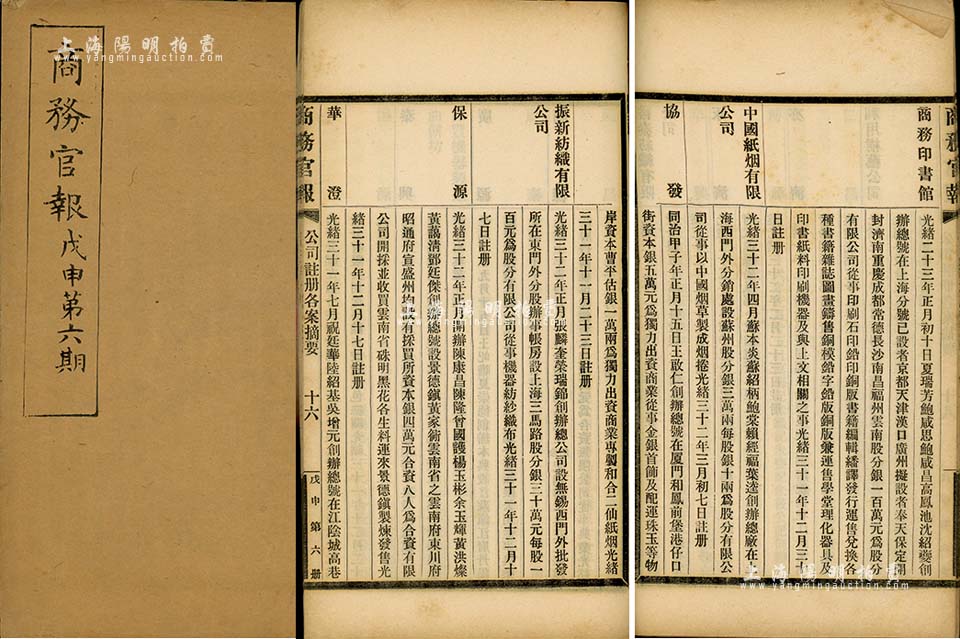 商務官報 戊申第六期
上海陽明拍賣
www.yangmingauction.com
商務官報
商務印書館
光緒二十三年正月初十日夏瑞芳鮑咸恩鮑咸昌高鳳池沈紹夔創
辦總號在上海分號已設者京都天津漢口廣州擬設者奉天保定開
封濟南重慶成都常德長沙南昌福州雲南股分銀一百萬元為股分
有限公司從事印刷石印鉛印銅版書籍編輯繙譯發行運售兌換各
種書籍雜誌圖畫鑄售銅模鉛字鉛版銅版兼運售學堂理化器具及
印書紙料印刷機器及與上文相關之事光緒三十一年十二月三十
日註册
中國紙烟有限
公司
光緒三十二年四月蘇本炎蘇紹柄鮑棠賴經福葉逵創辦總廠在上
海西門外分銷處設蘇州股分銀三萬兩每股銀十兩為股分有限公
司從事以中國烟草製成烟捲光緒三十二年三月初七日註册
協發
同治甲子年正月十五日王啟仁創辦總號在厦門和鳳前堡港仔口
街資本銀五萬元為獨力出資商業從事金銀首飾及配運珠玉等物
上海陽明拍賣
www.yangmingauction.com
岸資本曹平估銀一萬兩為獨力出資商業專獨和合二仙紙烟光緒
三十一年十一月二十三日註册
振新紡織有限
公司
光緒三十二年正月張麟奎榮瑞錦創辦總公司設無錫西門外批發
所在東門外分股辦事帳房設上海三馬路股分銀三十萬元每股一
百元為股分有限公司從事機器紡紗織布光緒三十一年十二月十
七日註册
保源
光緒三十二年正月開辦陳康昌陳隆曾國護楊玉彬余玉輝黃洪燦
黃藹清鄧廷傑創辦總號設景德鎮黃家衖雲南省之雲南府東川府
昭通府宣盛州均設有採買所資本銀四萬元合資八人為合資有限
公司開採並收買雲南省硃明黑花各生料運來景德鎮製煉發售光
緒三十一年十二月十七日註册
華澄
光緒三十一年七月祝廷華陸紹基吳增元創辦總號在江陰城高巷
商務官報
公司註册各案摘要
十六
戊申第六册
上海陽明拍賣
www.yangmingauction.com
上海陽明拍賣
www.yangmingauction.com